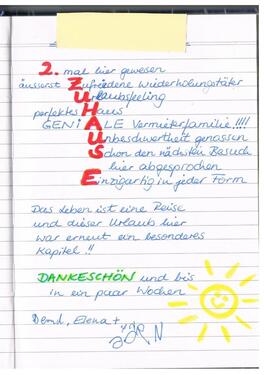 2. mal hier gewesen
äusserst Zufriedene Wiederholungstäter
Urlaubsfeeling
perfektes Haus
GENIALE Vermieterfamilie !!!!
Unbeschwertheit genossen
Schon den nächsten Besuch
hier abgesprochen
Einzigartig in jeder Form
Das Leben ist eine Reise
und dieser Urlaub hier
war erneut ein besonderes
Kapitel !!
DANKESCHÖN und bis
in ein paar Wochen
Bernd, Elena +